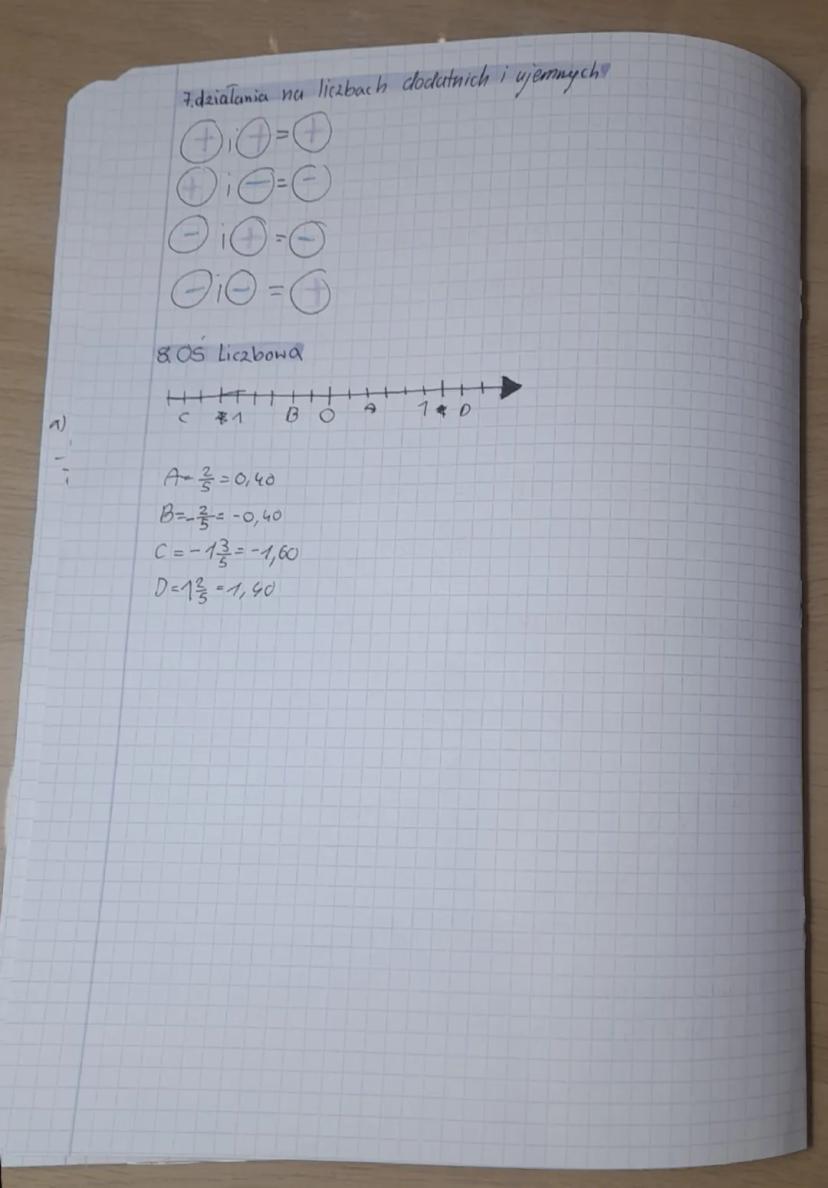 7. działania na liczbach dodatnich i ujemnych
+ i + = +
+ i - = -
- i + = -
- i - = +
8. OŚ Liczbowa
C -1 B 0 A 1 D
a)
A = 2/5 = 0,40
B = -2/5 = -0,40
C = -1 3/5 = -1,60
D = 1 2/5 = 1,40